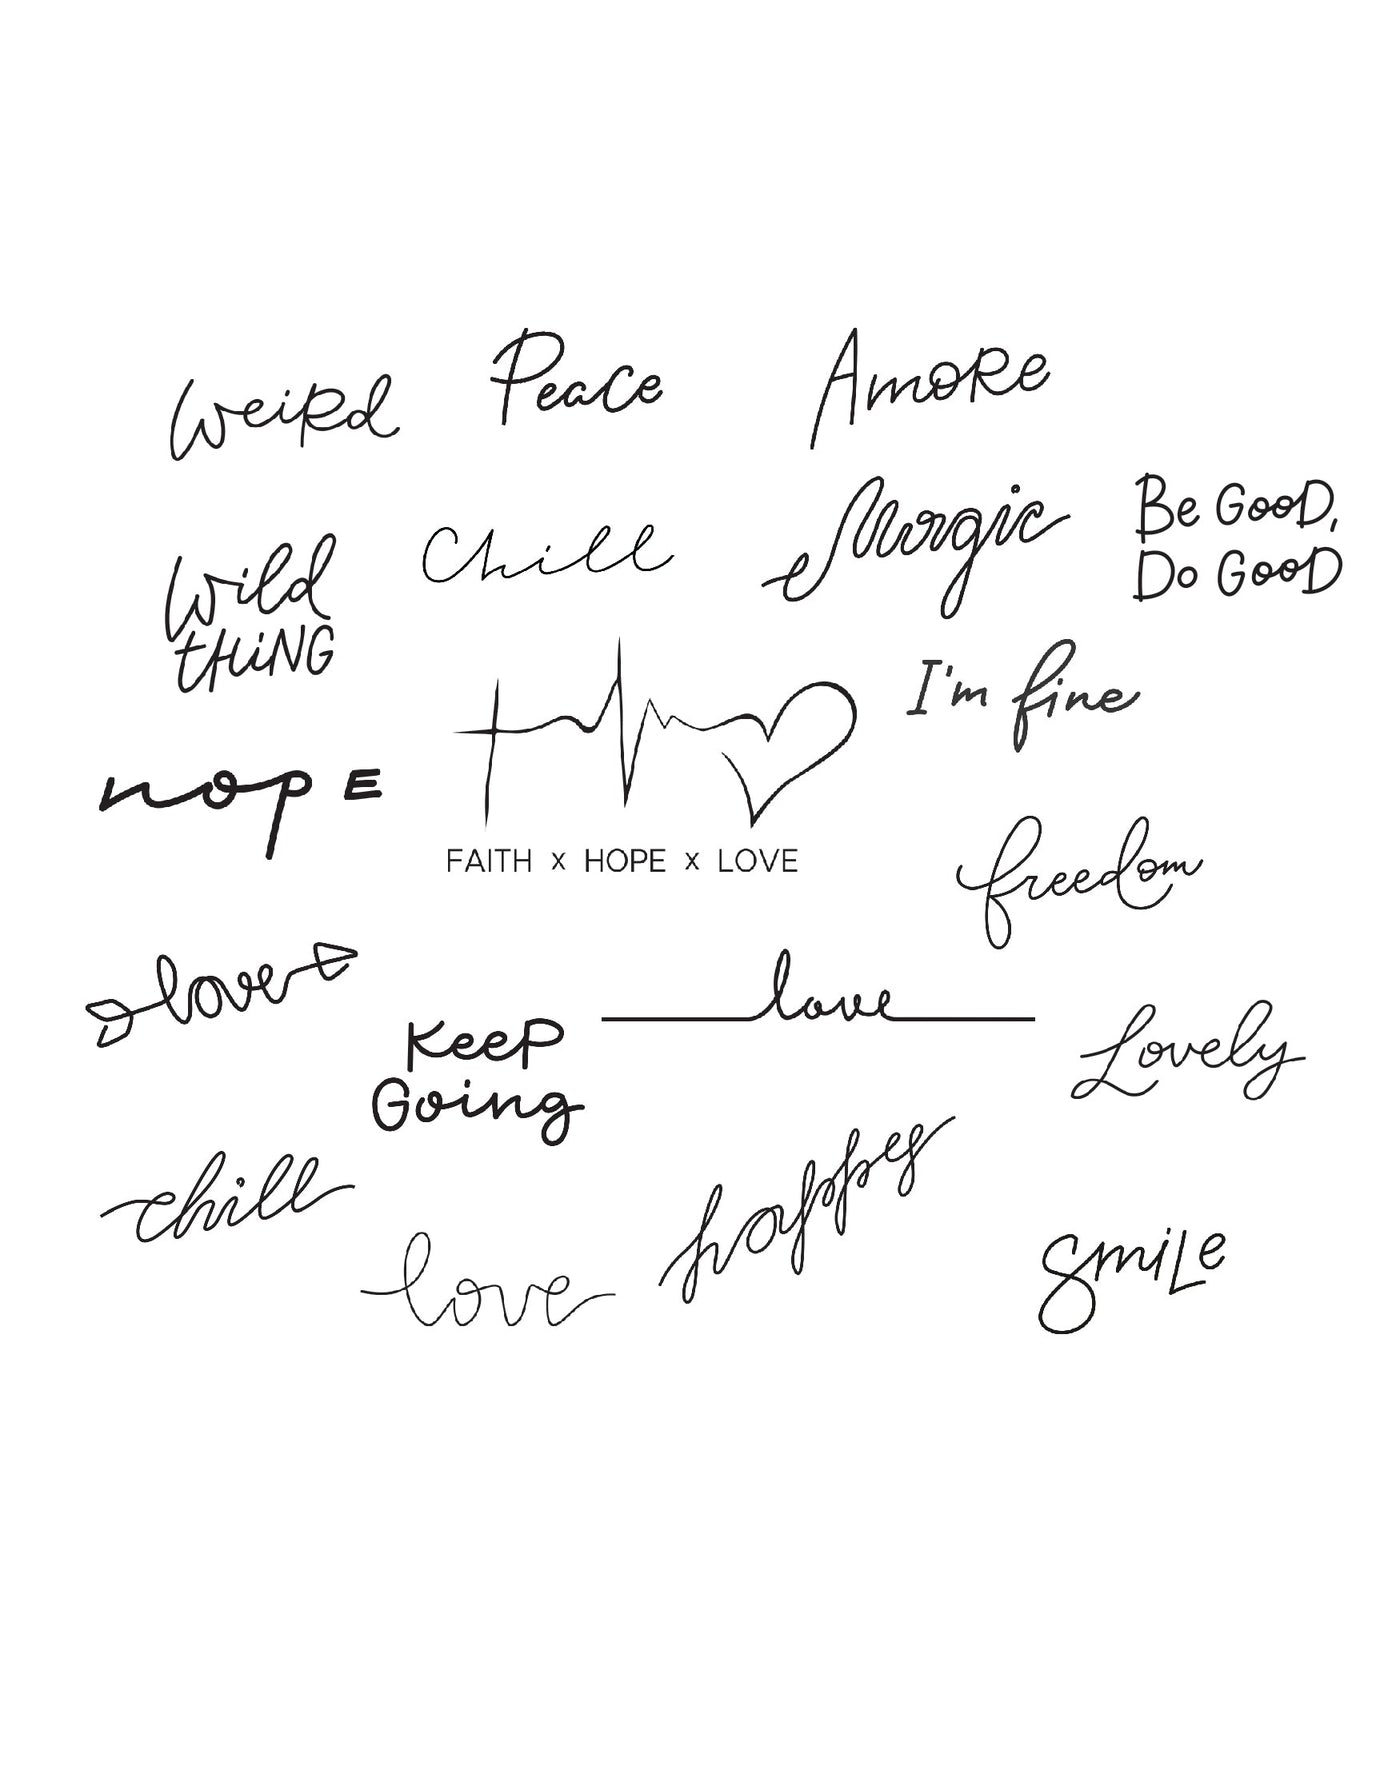 weiRd
Peace
AmoRe
Wild
tHiNG
Chill
Magic
Be GooD,
Do GooD
I'm fine
nop E
FAITH x HOPE x LOVE
freedom
love
Keep
Going
love
Lovely
chill
love
happy
SmiLe